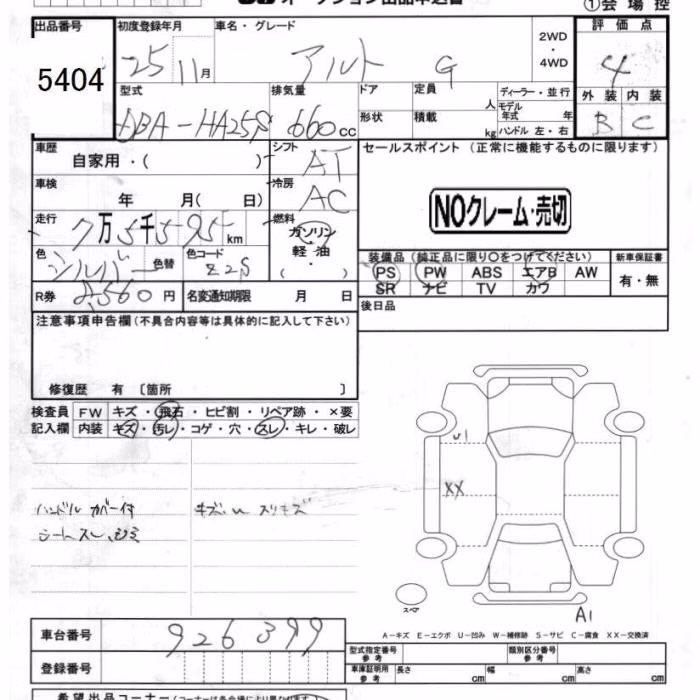 ①会場控
出品番号 初度登録年月 車名・グレード 評価点
5404 25 11月 アルト G 2WD・4WD 4
型式 排気量 ドア 定員 人 ディーラー・並行 外装 内装
DBA-HA25S 660cc 形状 積載 kg モデル年式 年 ハンドル 左・右 B C
車歴 自家用・( ) シフト AT セールスポイント(正常に機能するものに限ります)
車検 年 月( 日) 冷房 AC
NOクレーム・売切
走行 7万5千595km 燃料 ガソリン・軽油・( )
色 シルバー 色替 色コード Z2S 装備品(純正品に限り○をつけてください) 新車保証書
PS PW ABS エアB AW 有・無
SR ナビ TV カワ
R券 8,560円 名変通知期限 月 日 後日品
注意事項申告欄(不具合内容等は具体的に記入して下さい)
修復歴 有〔箇所 〕
検査員 FW キズ・飛石・ヒビ割・リペア跡・×要
記入欄 内装 キズ・汚レ・コゲ・穴・スレ・キレ・破レ
U1
XX
ハンドルカバー付 キズ、スリキズ
シートスレ、シミ
スペア
A1
A-キズ E-エクボ U-凹み W-補修跡 S-サビ C-腐食 XX-交換済
車台番号 926399
型式指定番号 参考 類別区分番号 参考
登録番号 車庫証明用 参考 長さ cm 幅 cm 高さ cm
希望出品コーナー